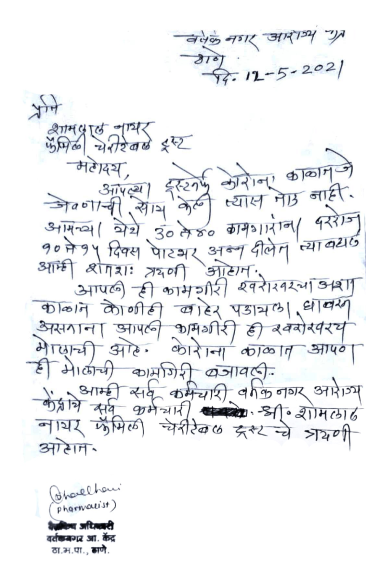 वर्तक नगर आरोग्य केंद्र
ठाणे.
दि. 12-5-2021
प्रति
शामलाल नायर
फॅमिली चेरीटेबल ट्रस्ट
महोदय,
आपल्या ट्रस्टतर्फे कोरोना काळात जे
जेवणाची सोय केली त्यास तोड नाही.
आमच्या येथे ३० ते ४० कामगारांना दररोज
१० ते १५ दिवस पोटभर अन्न दीलेत त्याबद्दल
आम्ही शतशः ऋणी आहोत.
आपली ही कामगीरी खरोखरच अशा
काळात कोणीही बाहेर पडायला धावत
असताना आपली कामगीरी ही खरोखरच
मोलाची आहे. कोरोना काळात आपण
ही मोलाची कामगिरी बजावली.
आम्ही सर्व कर्मचारी वर्तक नगर आरोग्य
केंद्राचे सर्व कर्मचारी श्री. शामलाल
नायर फॅमिली चेरीटेबल ट्रस्ट चे ऋणी
आहोत.
(Pharmacist)
वैद्यकिय अधिकारी
वर्तकनगर आ. केंद्र
ठा.म.पा., ठाणे.